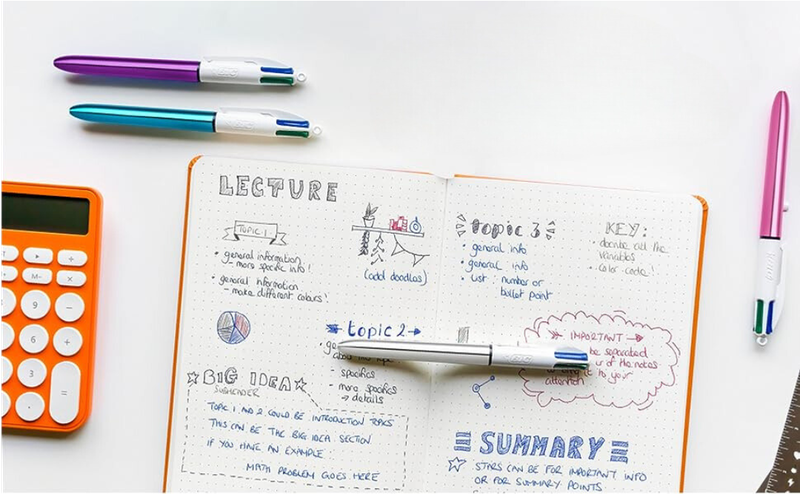 LECTURE
TOPIC 1
• general information
– more specific info!
• general information
– make different colours!
(add doodles)
topic 2
specifics
• more specifics
→ details
BIG IDEA
SUBHEADER
TOPIC 1 AND 2 COULD BE INTRODUCTION TOPICS
THIS CAN BE THE BIG IDEA SECTION
IF YOU HAVE AN EXAMPLE:
MATH PROBLEM GOES HERE
topic 3
• general info
• general info
• list: number or
bullet point
KEY:
• describe all the
variables
• color-code!
IMPORTANT
be separated
of the notes
to your
attention
SUMMARY
STARS CAN BE FOR IMPORTANT INFO
OR FOR SUMMARY POINTS
M-
÷
×
9
6
+
3
=